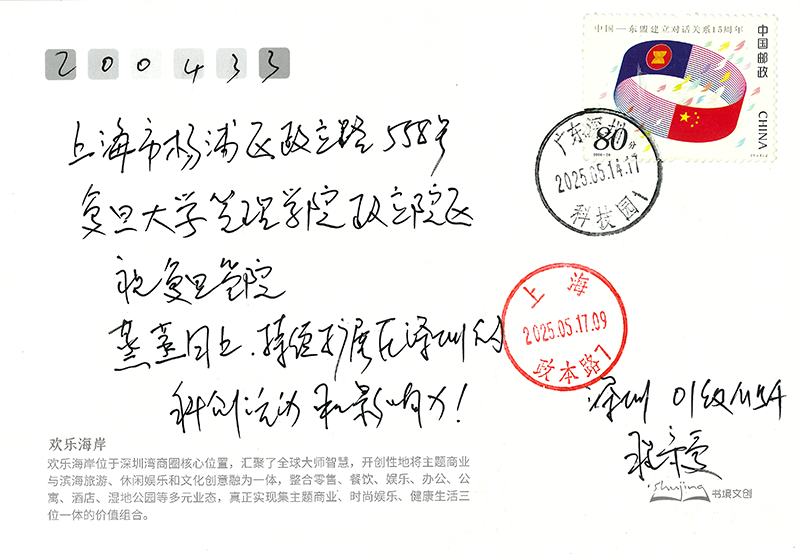 200433
中国—东盟建立对话关系15周年
中国邮政
CHINA
80分
广东深圳
2025.05.14.17
科技园1
上海市杨浦区政立路558号
复旦大学管理学院政立院区
祝复旦管院
蒸蒸日上,持续扩展在深圳的
科创活力和影响力!
上海
2025.05.17.09
政本路7
深圳 01级MBA
欢乐海岸
欢乐海岸位于深圳湾商圈核心位置,汇聚了全球大师智慧,开创性地将主题商业
与滨海旅游、休闲娱乐和文化创意融为一体,整合零售、餐饮、娱乐、办公、公
寓、酒店、湿地公园等多元业态,真正实现集主题商业、时尚娱乐、健康生活三
位一体的价值组合。
shujing 书境文创